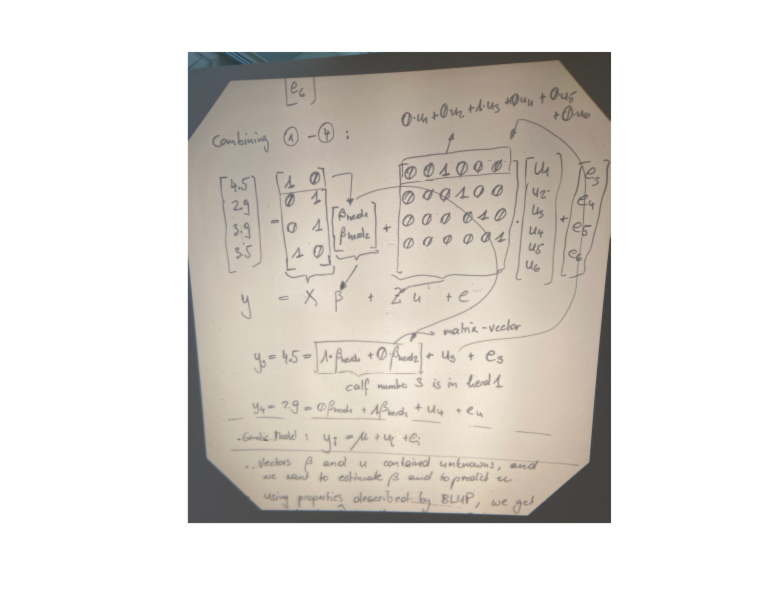 [e6]
0·u1 + 0·u2 + 1·u3 + 0·u4 + 0·u5
+ 0·u6
Combining ① - ④ :
[4.5 2.9 3.9 3.5] = [1 0; 0 1; 0 1; 1 0] [βherd1 βherd2] + [0 0 1 0 0 0; 0 0 0 1 0 0; 0 0 0 0 1 0; 0 0 0 0 0 1] · [u1 u2 u3 u4 u5 u6] + [e3 e4 e5 e6]
y = X β + Z u + e
matrix-vector
y3 = 4.5 = 1·βherd1 + 0·βherd2 + u3 + e3
calf number 3 is in herd 1
y4 = 2.9 = 0βherd1 + 1βherd2 + u4 + e4
·Genetic Model : yi = μ + ui + ei
·. Vectors β and u contained unknowns, and
we want to estimate β and to predict u
Using properties described by BLUP, we get